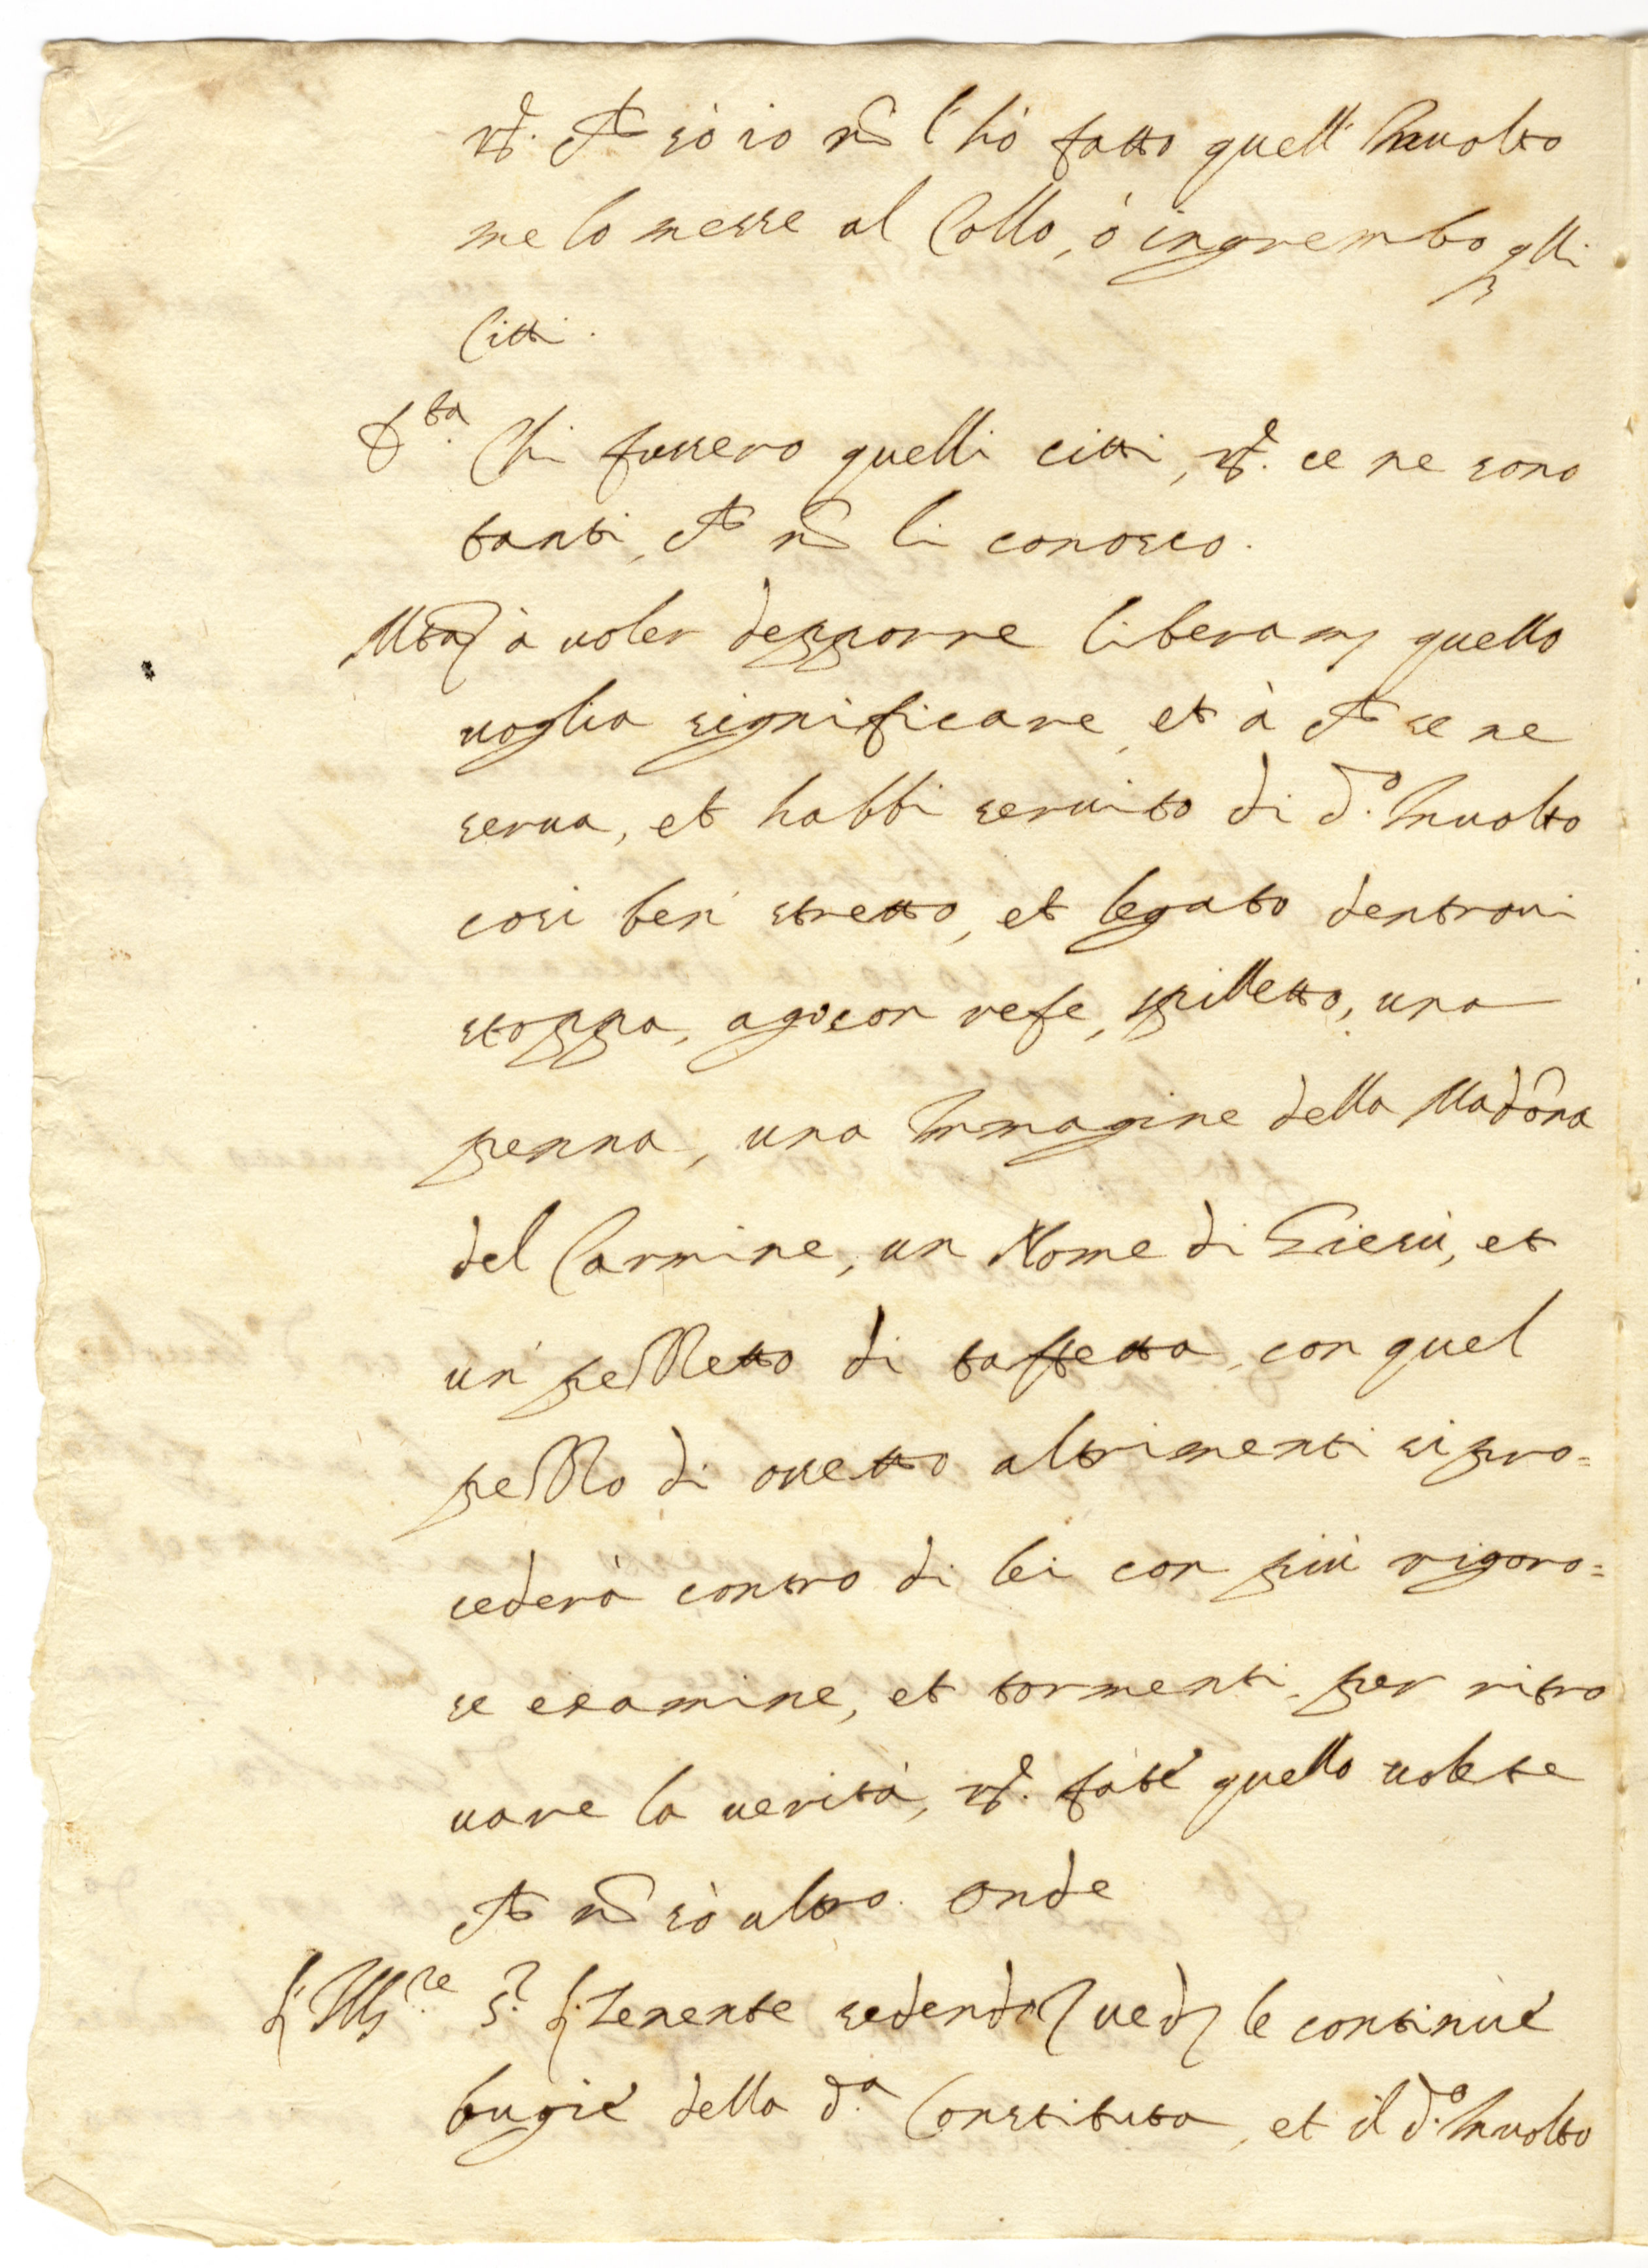 Rx. che sò io nō l'hò fatto quell'Inuolto
me lo messe al Collo, ò ingrembo qlli
Citti.
Dta. Chi fussero quelli citti, Rx. ce ne sono
tanti, che nō li conosco.
Mta à uoler depporre liberam. quello
uoglia significare, et à che se ne
serua, et habbi seruito di d.o Inuolto
cosi ben' stretto, et legato dentroui
stoppa, ago con refe, spilletto, una
penna, una Immagine della Madōna
del Carmine, un Nome di Giesù, et
un' pezzetto di taffetta, con quel
pezzo di ossetto altrimenti si pro=
cederà contro di lei con più rigoro=
se esamine, et tormenti per ritro
uare la uerità, Rx. fate' quello uolete
che nō sò altro. Onde
L'Ill.re S.r L. Tenente sedendo ued. le continue'
bugie' della d.a Constituta, et il d.o Inuolto